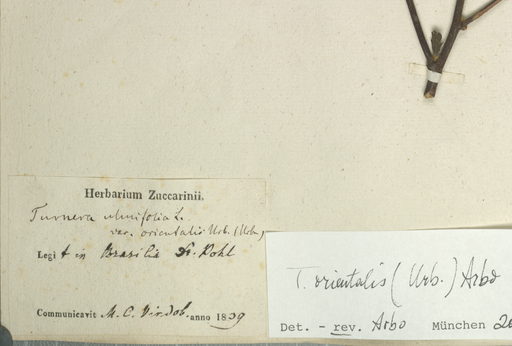 Herbarium Zuccarinii.
Turnera ulmifolia L.
var. orientalis Urb. (Urb.)
Legit in Brasilia Dr. Pohl
Communicavit M. C. Vindob. anno 1839
T. orientalis (Urb.) Arbo
Det. - rev. Arbo München 20